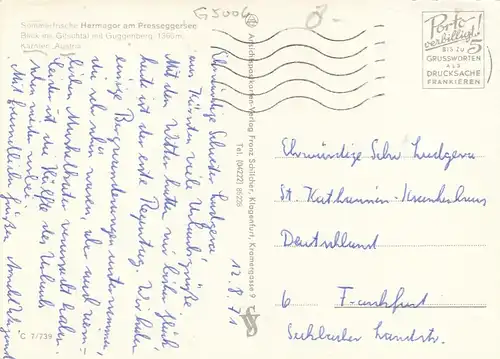 Sommerfrische Hermagor am Presseggersee
Blick ins Gitschtal mit Guggenberg, 1366m
Kärnten, Austria
Ehrwürdige Schwester Ludgera
aus Kärnten viele Urlaubsgrüße
Mit dem Wetter hatten wir bisher Glück
heute ist der erste Regentag. Wir haben
einige Bergwanderungen unternommen,
die sehr schön waren, aber auch
leider Muskelkater verursacht haben.
Leider ist die Hälfte des Urlaubs
schon wieder vorbei.
Mit freundlichen Grüßen
12.8.71
C 7/739
Ansichtskarten-Verlag Franz Schilcher, Klagenfurt, Kramergasse 9
Tel. (04222) 80228
G 5006
Porto
verbilligt!
BIS ZU 5
GRUSSWORTEN
ALS
DRUCKSACHE
FRANKIEREN
Ehrwürdige Schw. Ludgera
St. Katharinen-Krankenhaus
Deutschland
6 Frankfurt
Seckbacher Landstr.